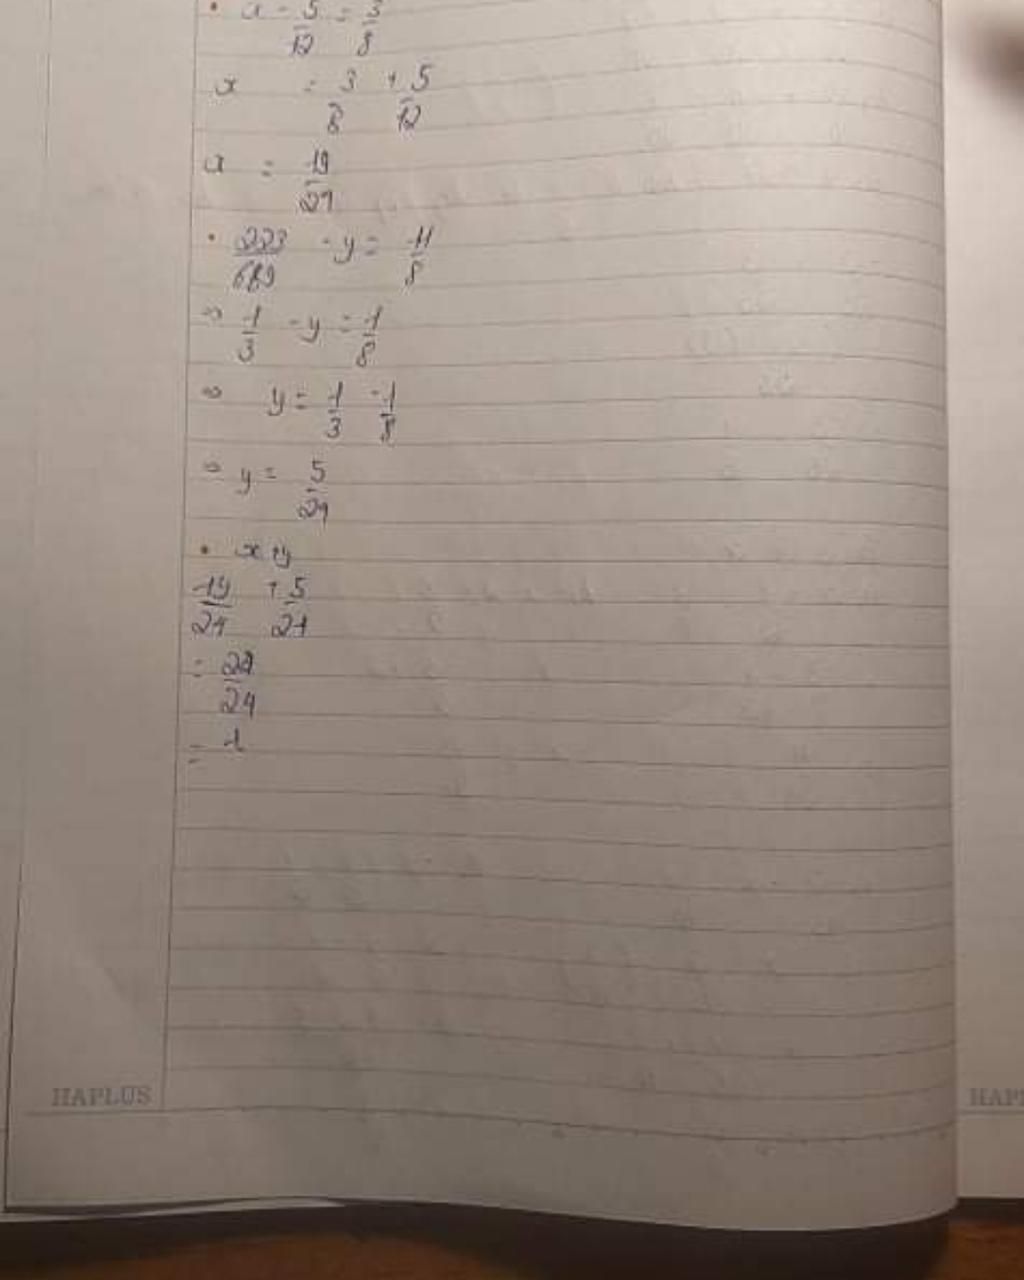 • x - 5/12 = 3/8
x = 3/8 + 5/12
x = 19/24
• 223/669 - y = 11/8
=> 1/3 - y = 1/8
=> y = 1/3 - 1/8
=> y = 5/24
• x + y
19/24 + 5/24
= 24/24
= 1
HAPLUS